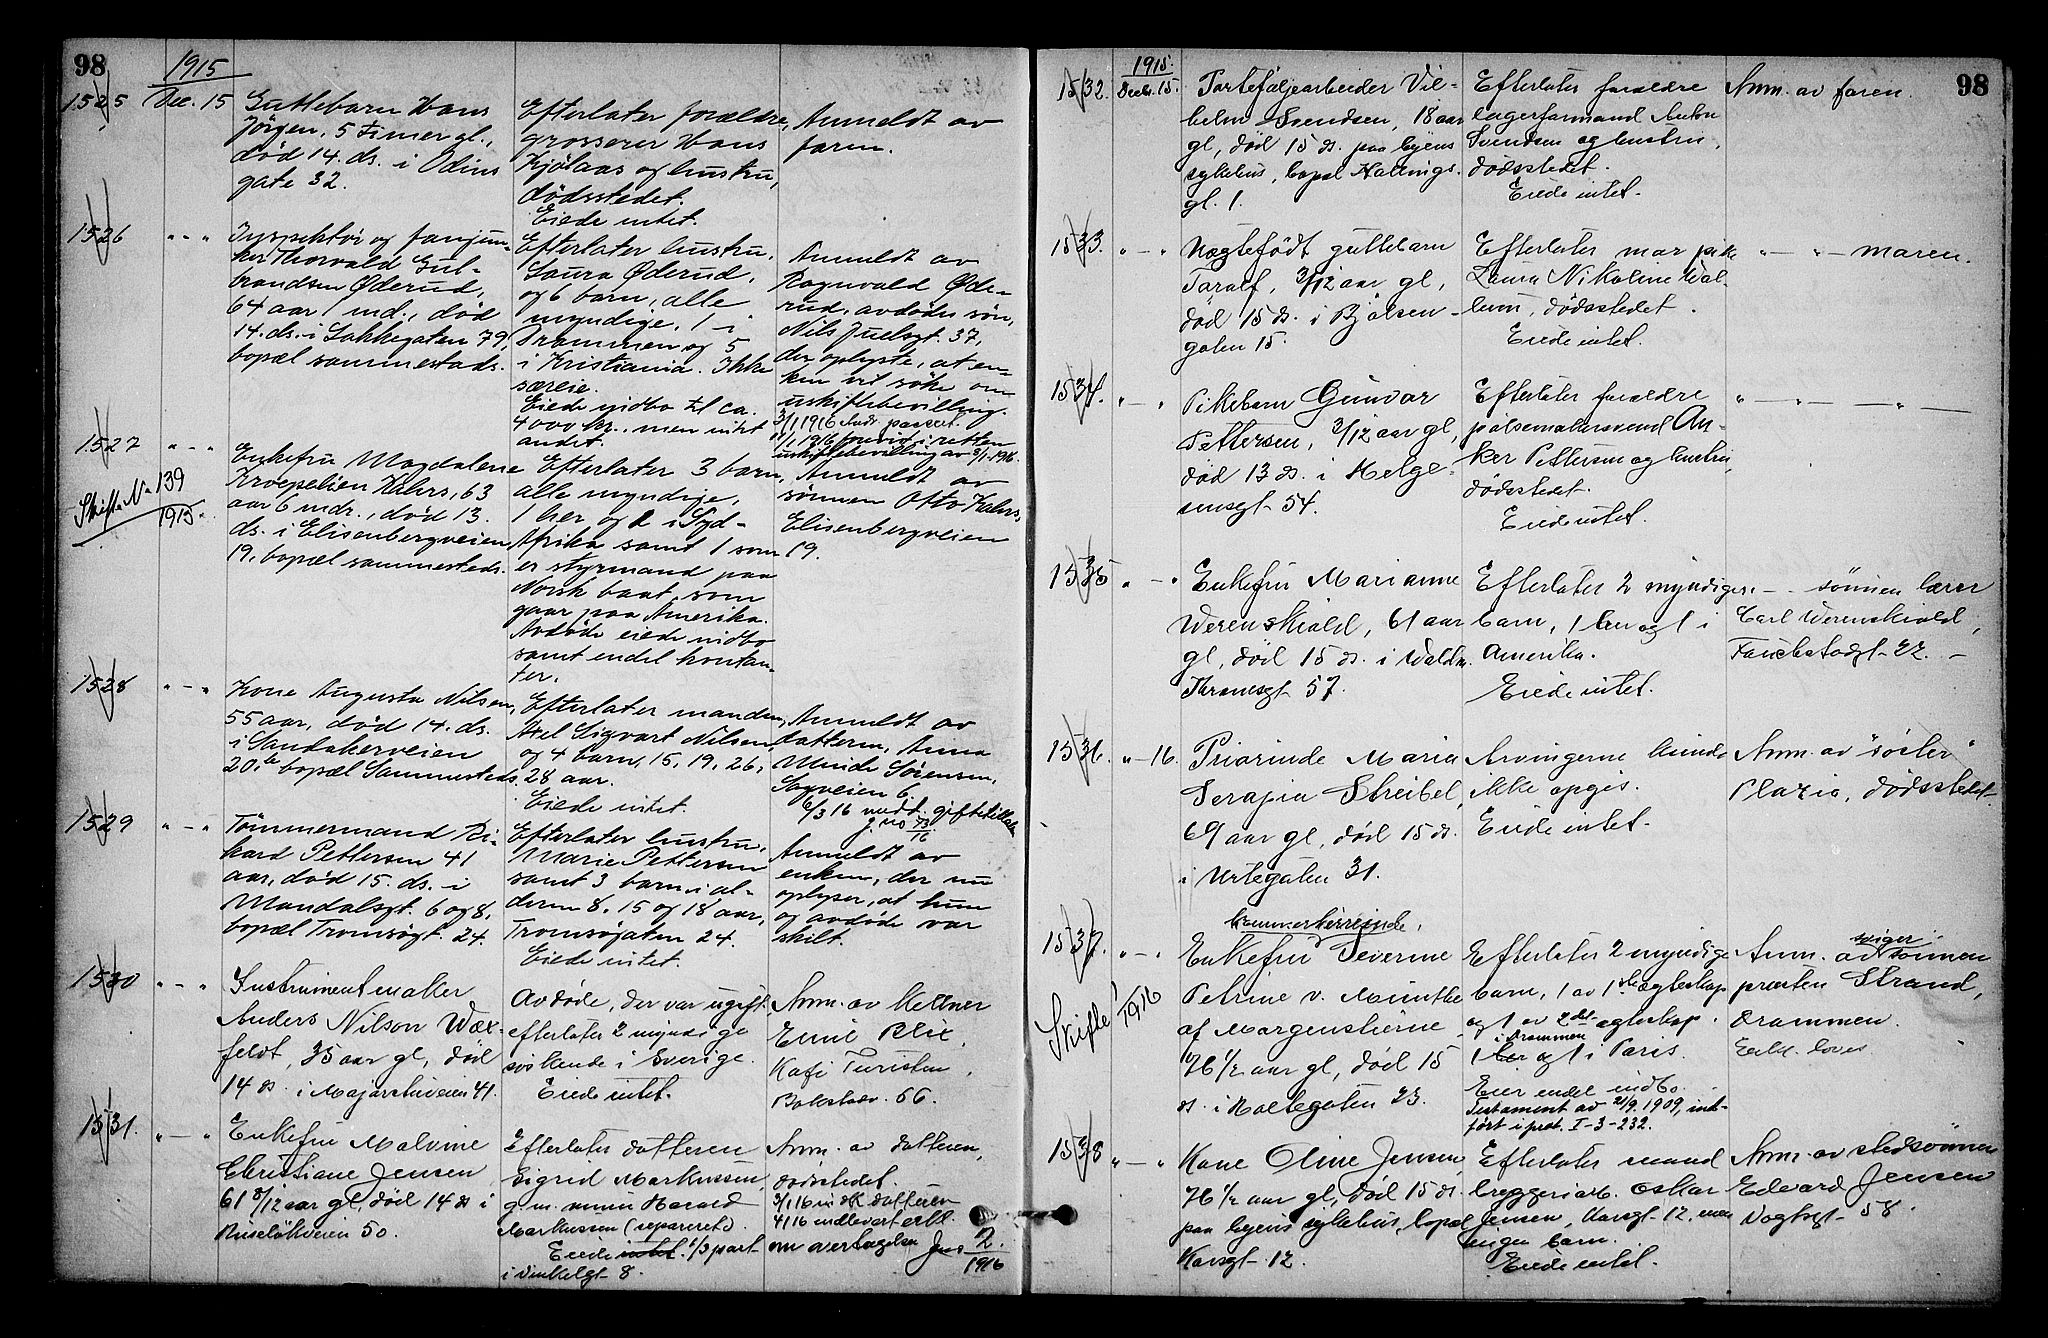 98
1915
1525 Dec. 15
Guttebarn Hans
Jörgen, 5 timer gl.,
död 14. ds. i Odins
gate 32.
Efterlater forældre,
grosserer Hans
Kjölaas og hustru,
dödsstedet.
Eiede intet.
Anmeldt av
faren.
1526 " - "
Inspektör og fanejun-
ker Thorvald Gul-
brandsen Øderud,
64 aar 1 md., död
14. ds. i Sakkegaten 79,
bopæl sammesteds.
Efterlater hustru,
Laura Øderud,
og 6 barn, alle
myndige, 1 i
Drammen og 5
i Kristiania. Ikke
særeie.
Eiede indbo til ca.
4000 kr., men intet
andet.
Anmeldt av
Ragnvald Øde-
rud, avdödes sön,
Nils Juelsgt. 37,
der oplyste, at en-
ken vil söke om
uskiftebevilling.
3/1 1916
uskiftebevilling av 3/1 1916.
1527 " - "
Skifte No 139
1915.
Enkefru Magdalene
Kroepelien Kahrs, 63
aar 6 mdr., död 13.
ds. i Elisenbergveien
19, bopæl sammesteds.
Efterlater 3 barn,
alle myndige,
1 her og 2 i Syd-
Afrika samt 1 som
er styrmand paa
Norsk baat, som
gaar paa Amerika.
Avdöde eiede indbo
samt endel kontan-
ter.
Anmeldt av
sönnen Otto Kahrs,
Elisenbergveien
19.
1528 " - "
Kone Augusta Nilsen,
55 aar, död 14. ds.
i Sandakerveien
20, bopæl Sammesteds.
Efterlater manden,
Axel Sigvart Nilsen,
og 4 barn, 15, 19, 26,
28 aar.
Eiede intet.
Anmeldt av
datteren, Anna
Minde Sørensen,
Sagveien 6.
6/3 16 meddt. giftetillat.
1529 " - "
Tömmermand Ri-
kard Pettersen 41
aar, död 15. ds. i
Mandalsgt. 6 og 8,
bopæl Tromsögt. 24.
Efterlater hustru,
Marie Pettersen
samt 3 barn i al-
deren 8, 15 og 18 aar,
Tromsögaten 24.
Eiede intet.
Anmeldt av
enken, der nu
oplyser, at hun
og avdöde var
skilt.
1530 " - "
Instrumentmaker
Anders Nilson Wæx-
feldt, 35 aar gl, död
14 ds. i Majorstuveien 41.
Avdöde, der var ugift
efterlater 2 myndige
söskende i Sverige.
Eiede intet.
Anm. av kellner
Emil Blix,
Kafe Turisten,
Bokstadv. 66.
1531. " - "
Enkefru Malvine
Christiane Jensen
61 8/12 aar gl, död 14 ds i
Ruselökveien 50.
Efterlater datteren
Sigrid Markussen,
g. m. murer Harald
Markussen (separeret).
Eiede intet. 1/3 part
i Vinkelgt. 8.
Anm. av datteren,
dödsstedet.
3/1 16 datteren
4/1 16 indlevert erkl.
om overtagelse Jno 2
1916
98
1915.
1532. Decbr. 15.
Porteføljearbeider Vil-
helm Svendsen, 18 aar
gl, död 15 ds. paa byens
sykehus, bopæl Hallings-
gt. 1.
Efterlater forældre
lagerformand Anton
Svendsen og hustru,
dödsstedet.
Eiede intet.
Anm. av faren.
1533. " - "
Uægtefödt guttebarn
Toralf, 3/12 aar gl,
död 15 ds. i Bjölsen-
gaten 15.
Efterlater mor pike
Laura Nikoline Wal-
lum, dödsstedet.
Eiede intet.
" - " - moren.
1534. " - "
Pikebarn Gunvor
Pettersen, 3/12 aar gl,
död 13 ds. i Helge-
sensgt. 54.
Efterlater forældre
pölsemakersvend An-
ker Pettersen og hustru,
dödsstedet.
Eiede intet.
" - " - " -
1535 " - "
Enkefru Marianne
Werenskiold, 61 aar
gl, död 15 ds. i Waldm.
Thranesgt. 57.
Efterlater 2 myndige
barn, 1 her og 1 i
Amerika.
Eiede intet.
" - - sönnen lærer
Carl Werenskiold,
Fauchaldsgt. 22. -
1536. " - 16.
Priorinde Maria
Serapia Streibel,
69 aar gl, död 15 ds.
i Urtegaten 31.
Arvingerne kunde
ikke opgis.
Eiede intet.
Anm. av "söster"
Plazia, dödsstedet.
1537. " - "
Skifte 1
1916
kammerherreinde,
Enkefru Severine
Petrine v. Munthe
af Morgenstierne
76 1/2 aar gl, död 15
ds. i Holtegaten 23.
Efterlater 2 myndige
barn, 1 av 1ste egteskap
og 1 av 2det egteskap.
i Drammen
1 her og 1 i Paris.
Eier endel indbo.
Testament av 21/9. 1909, ind-
fört i prot. I-3-232.
sviger
Anm. av sönnen
presten Strand,
Drammen.
Erkl. loves
1538 " - "
Kone Oline Jensen,
76 1/2 aar gl, död 15 ds.
paa byens sykehus, bopæl
Korsgt. 12.
Efterlater mand
bryggeriarb. Oskar
Jensen, Korsgt. 12, men
ingen barn.
Eiede intet.
Anm. av stedsönnen
Edvard Jensen
Vogtsgt. 58.